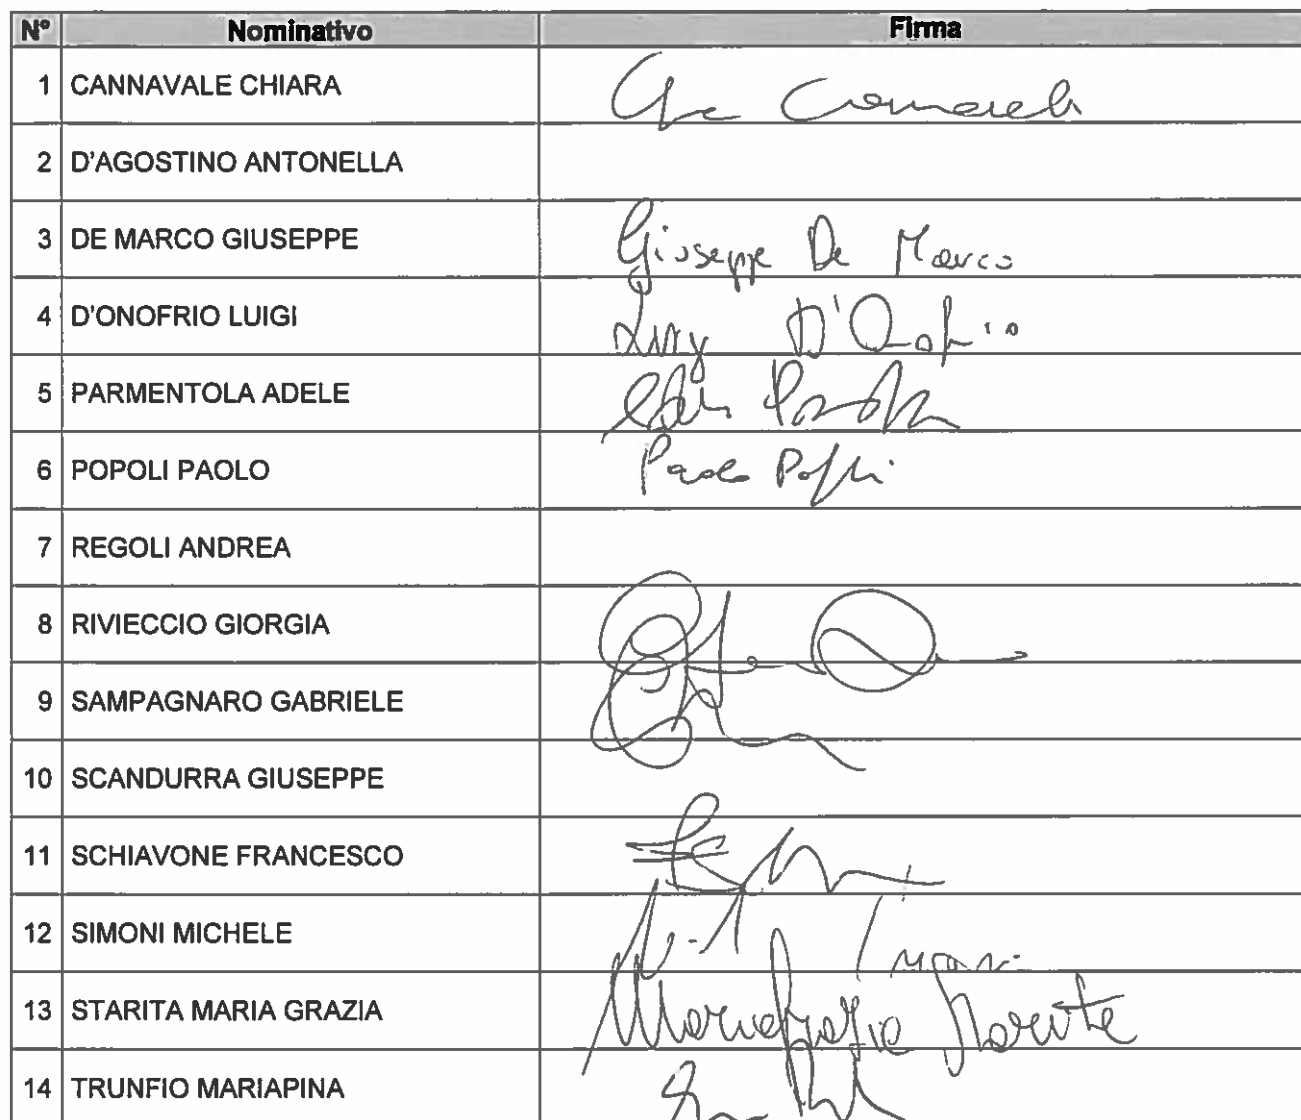 N° Nominativo Firma
1 CANNAVALE CHIARA
2 D'AGOSTINO ANTONELLA
3 DE MARCO GIUSEPPE Giuseppe De Marco
4 D'ONOFRIO LUIGI D'Onofrio
5 PARMENTOLA ADELE
6 POPOLI PAOLO Paolo Popoli
7 REGOLI ANDREA
8 RIVIECCIO GIORGIA
9 SAMPAGNARO GABRIELE
10 SCANDURRA GIUSEPPE
11 SCHIAVONE FRANCESCO
12 SIMONI MICHELE
13 STARITA MARIA GRAZIA Mariagrazia Starita
14 TRUNFIO MARIAPINA